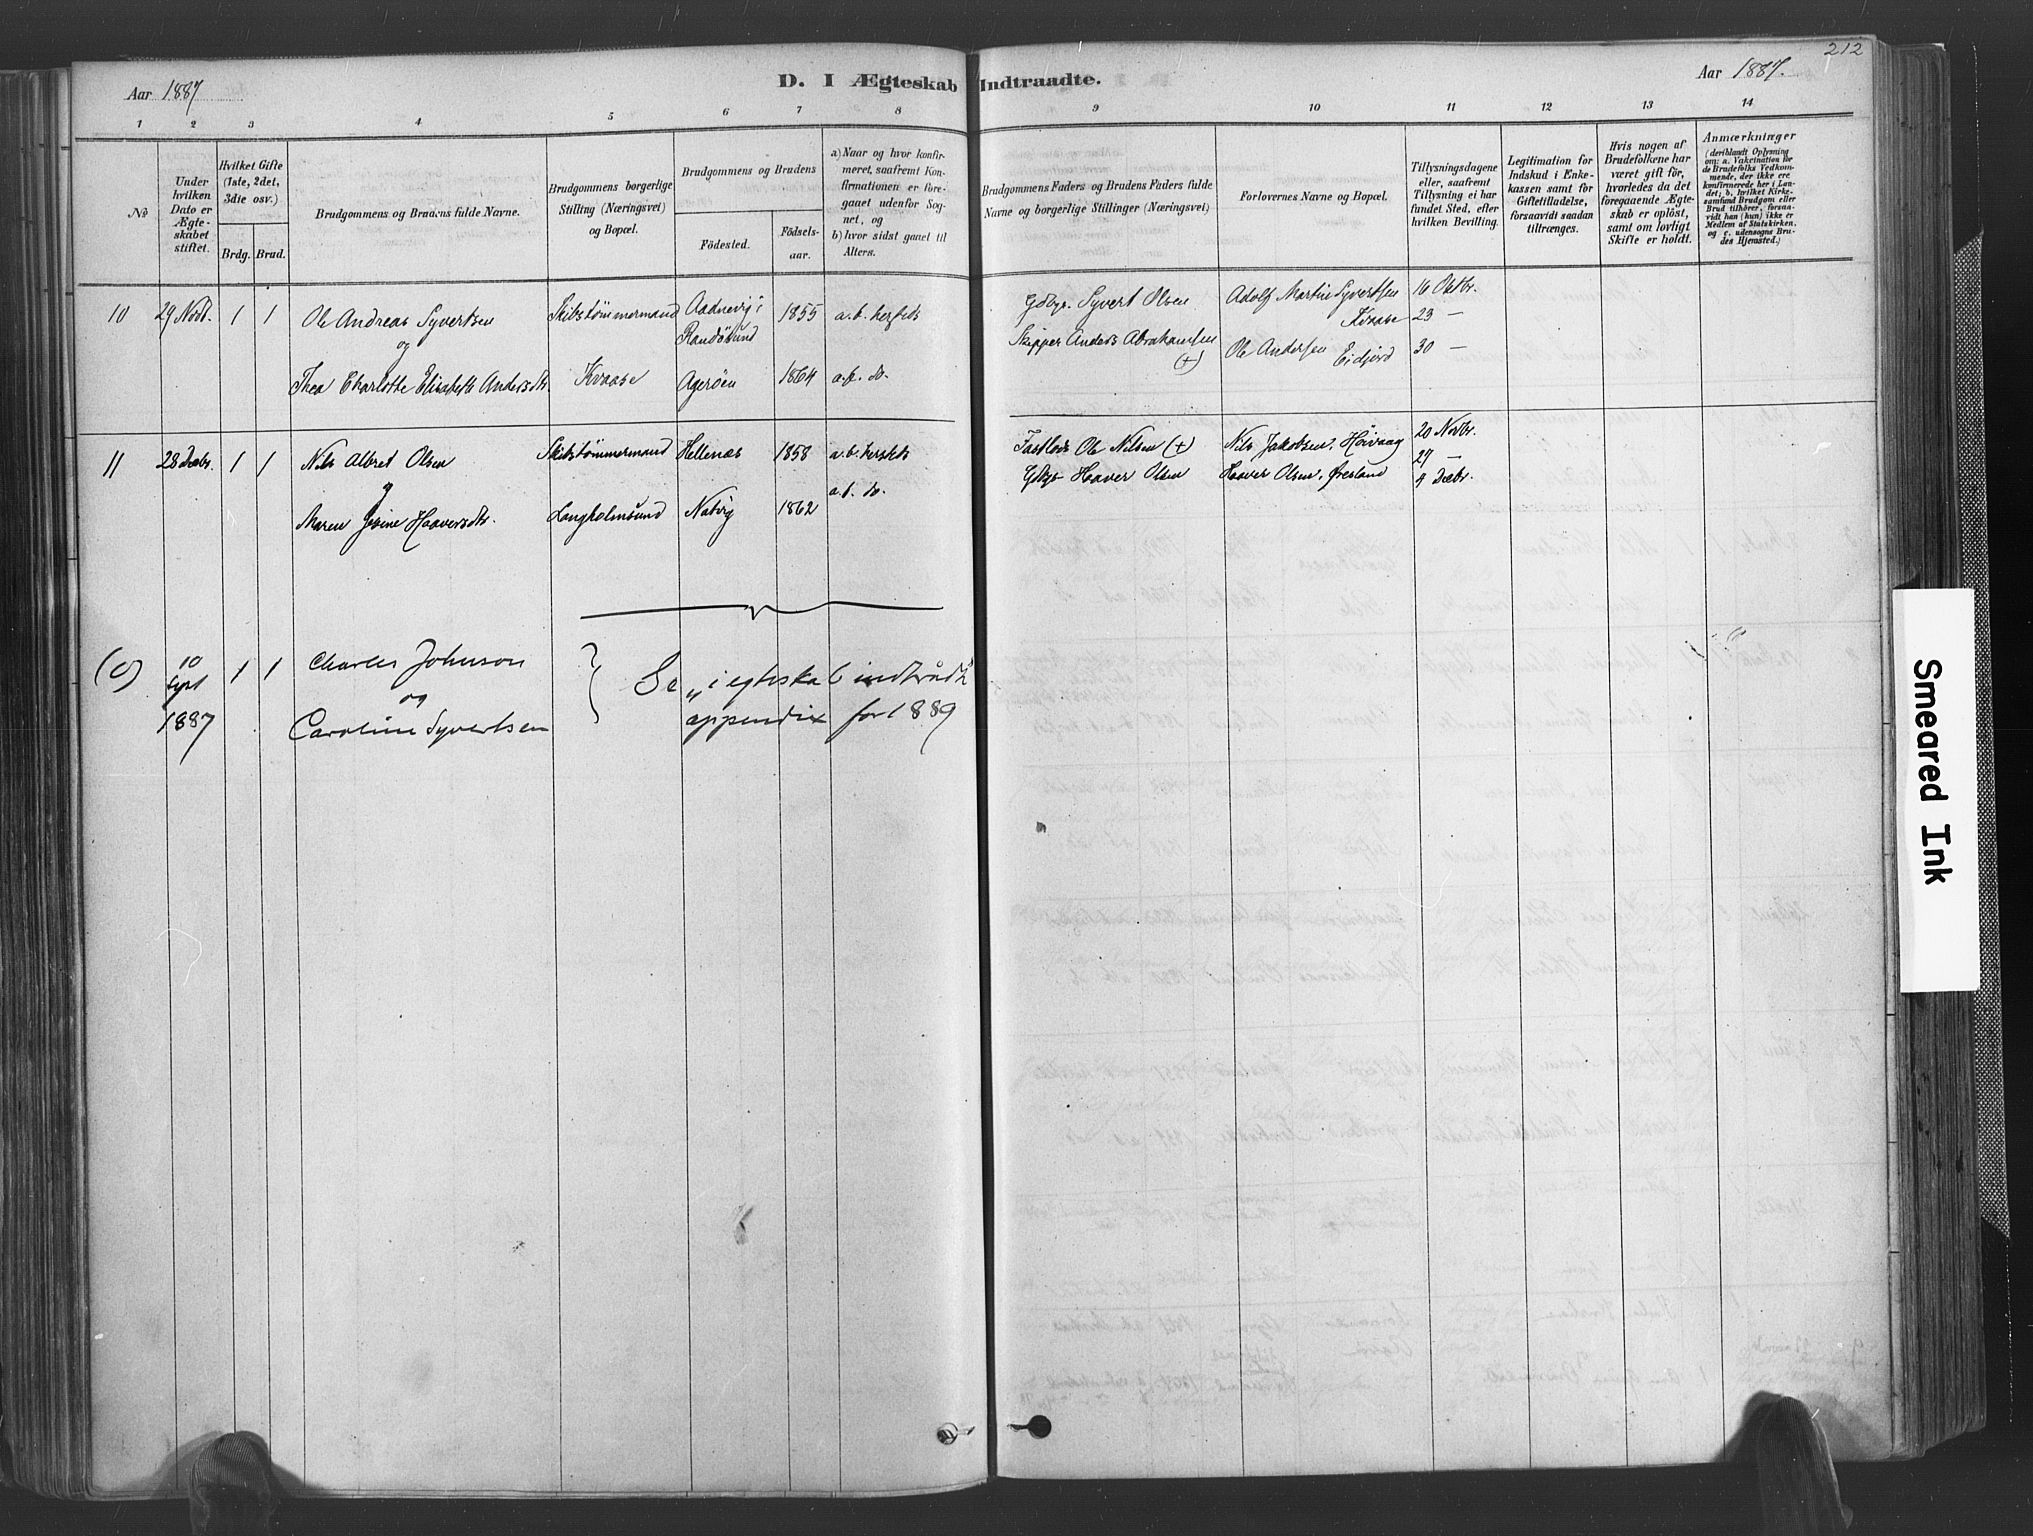 212
Aar 1887
D. I Ægteskab Indtraadte.
Aar 1887.
1 2 3 4 5 6 7 8 9 10 11 12 13 14
No
Under hvilken Dato er Ægteskabet stiftet.
Hvilket Gifte (1ste, 2det, 3die osv.)
Brdg. Brud.
Brudgommens og Brudens fulde Navne.
Brudgommens borgerlige Stilling (Næringsvei) og Bopæl.
Brudgommens og Brudens
Fødested.
Fødselsaar.
a) Naar og hvor konfirmeret, saafremt Konfirmationen er foregaaet udenfor Sognet, og
b) hvor sidst gaaet til Alters.
Brudgommens Faders og Brudens Faders fulde Navne og borgerlige Stillinger (Næringsvei)
Forlovernes Navne og Bopæl.
Tillysningsdagene eller, saafremt Tillysning ei har fundet Sted, efter hvilken Bevilling.
Legitimation for Indskud i Enkekassen samt for Giftetilladelse, forsaavidt saadan tiltrænges.
Hvis nogen af Brudefolkene har været gift før, hvorledes da det foregaaende Ægteskab er opløst, samt om lovligt Skifte er holdt.
Anmærkninger
(deriblandt Oplysning om: a. Vakcination for de Brudefolks Vedkommende, der ikke ere konfirmerede her i Landet; b. hvilket Kirkesamfund Brudgom eller Brud tilhører, forsaavidt han (hun) ikke er Medlem af Statskirken, og c. udensogns Brudes Hjemsted.)
10 29 Novb. 1 1 Ole Andreas Syvertsen Skibstømmermand Aadnevig i Randøsund 1855 a.b. hersteds Gdbgr. Syvert Olsen Adolf Martin Syvertsen Kvaase 16 Oktbr.
23 —
og
Skipper Anders Abrahamsen (+) Ole Andersen Eidjord 30 —
Thea Charlotte Elisabeth Andersdtr. Kvaase Agerøen 1864 a.b. do.
11 28 Decbr. 1 1 Nils Albret Olsen Skibstømmermand Hellenæs 1858 a.b. hersteds Ole Nilsen (+) Nils Jakobsen, Høivaag 20 Novbr.
og
Gdbgr. Haaver Olsen Haaver Olsen, Øresland 27 —
4 Decbr.
Maren Jesine Haaversdtr. Langholmsund Natvig 1862 a.b. do.
(C) 10 Sept 1887 1 1 Charles Johnson
og
Caroline Syvertsen
Se „i egteskab indtrådte"
appendix for 1889
Smeared Ink